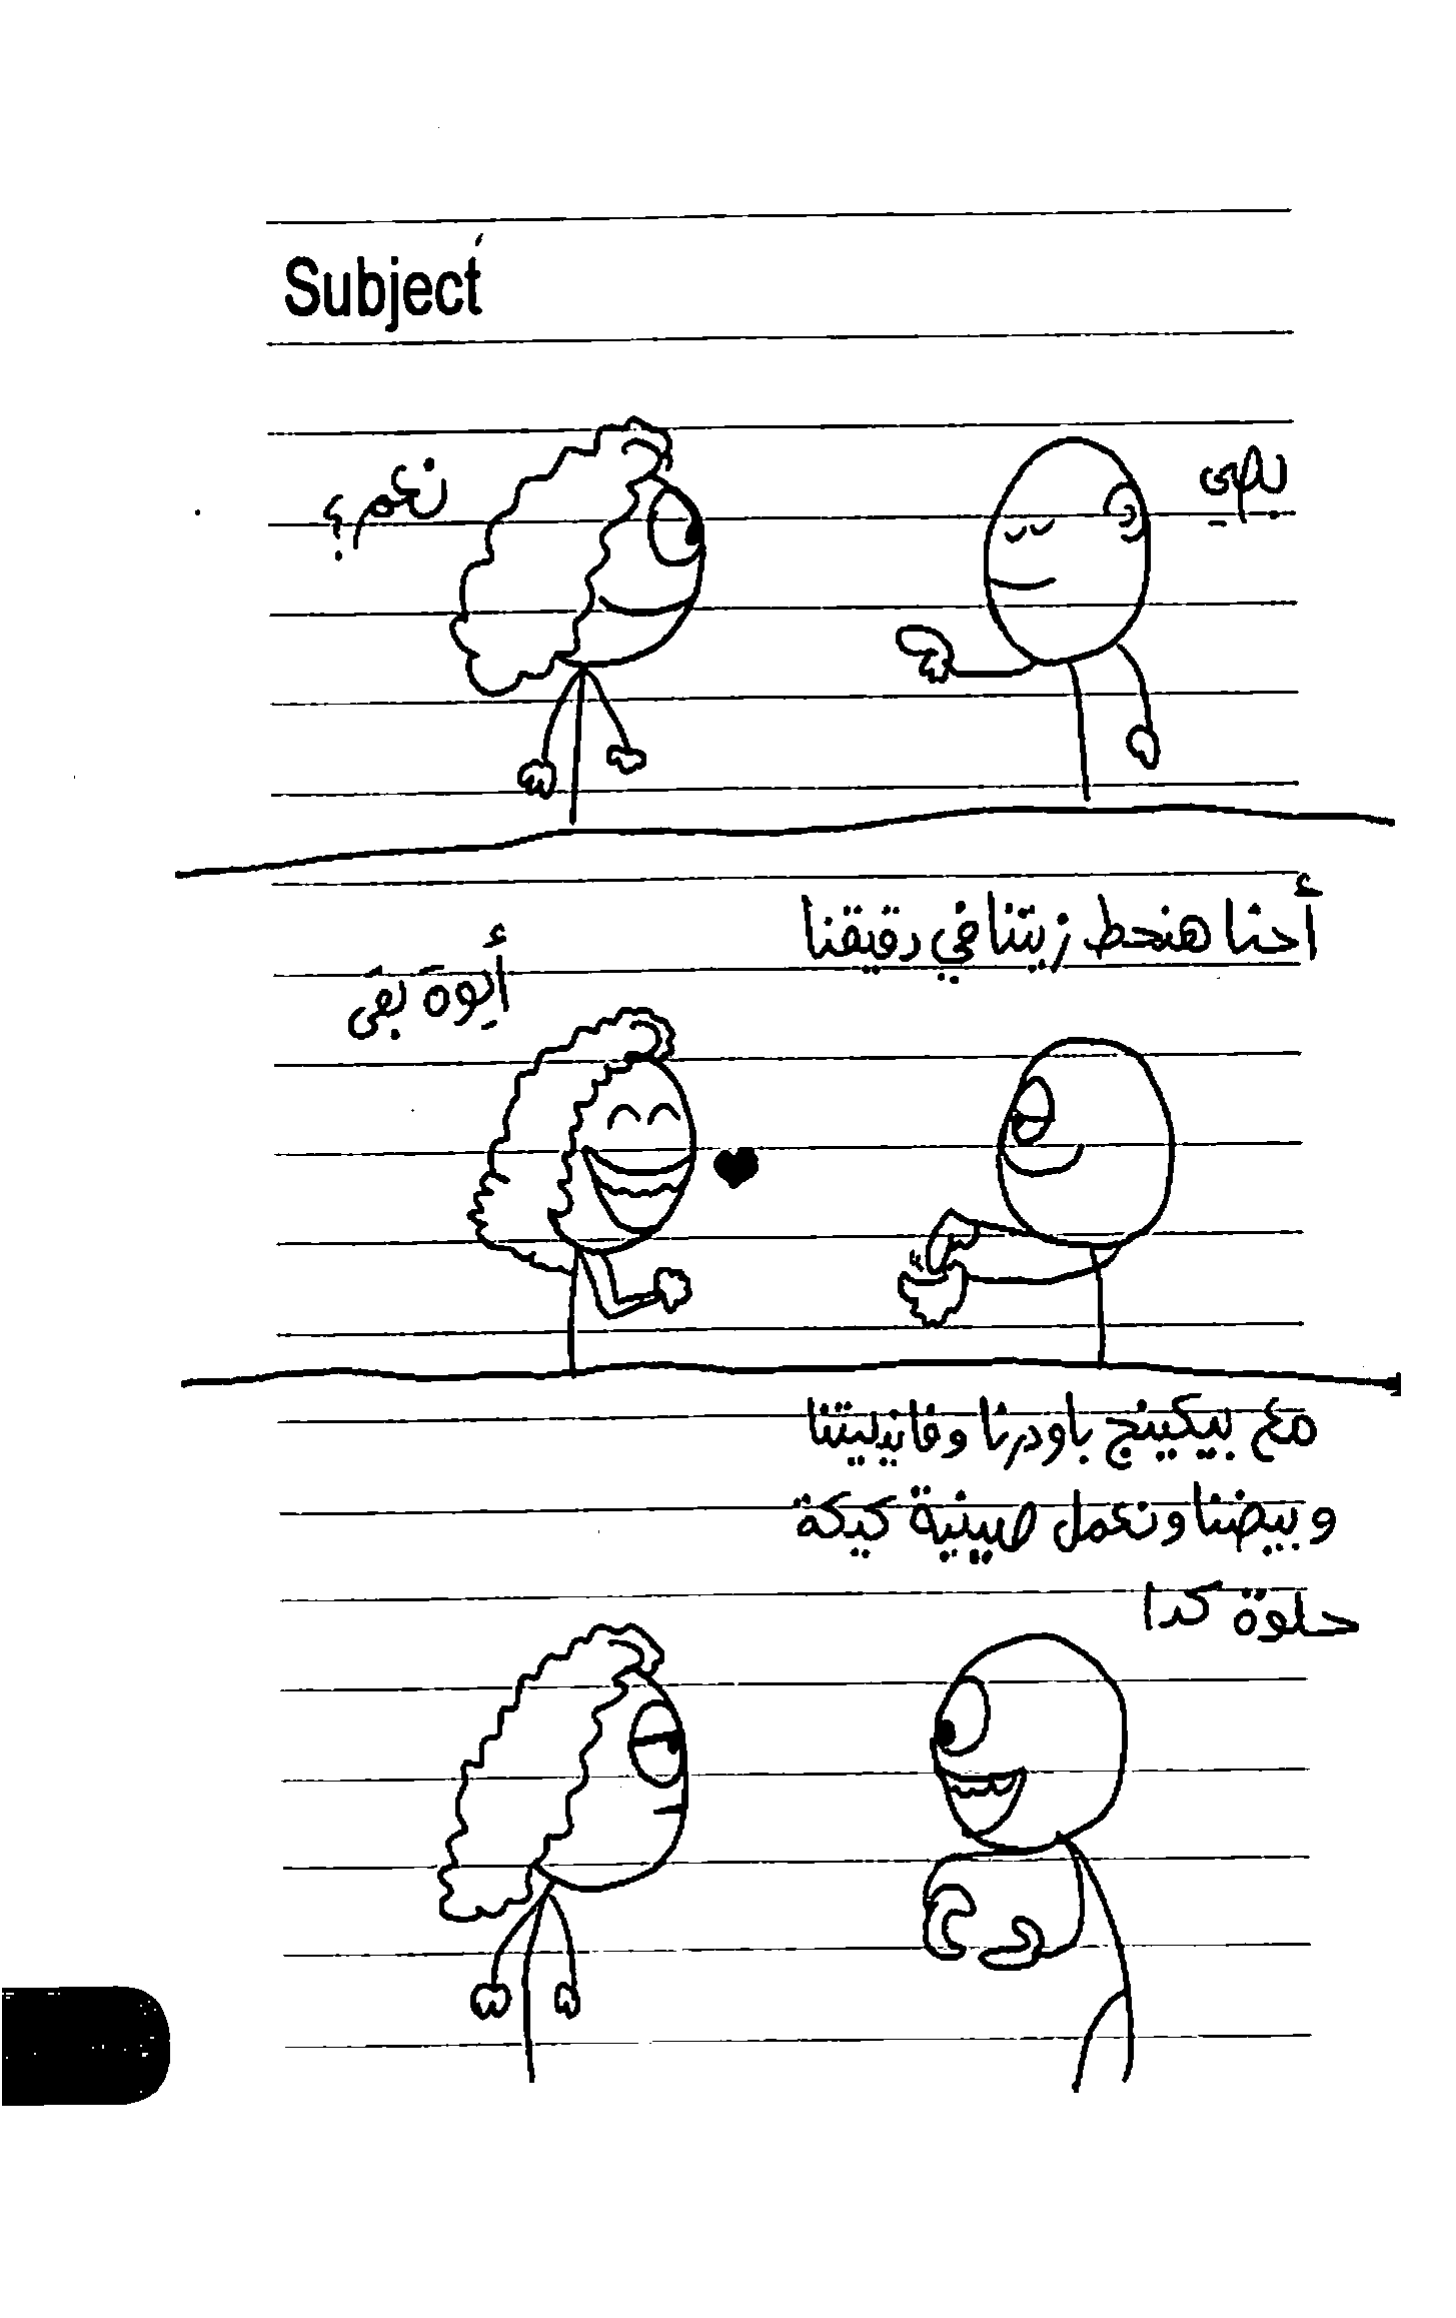 Subject
بصي
نعم؟
أحنا هنحط زيتنا في دقيقنا
أيوة بقى
مع بيكينج باودرنا وفانيليتنا
وبيضنا ونعمل صينية كيكة
حلوة كدا